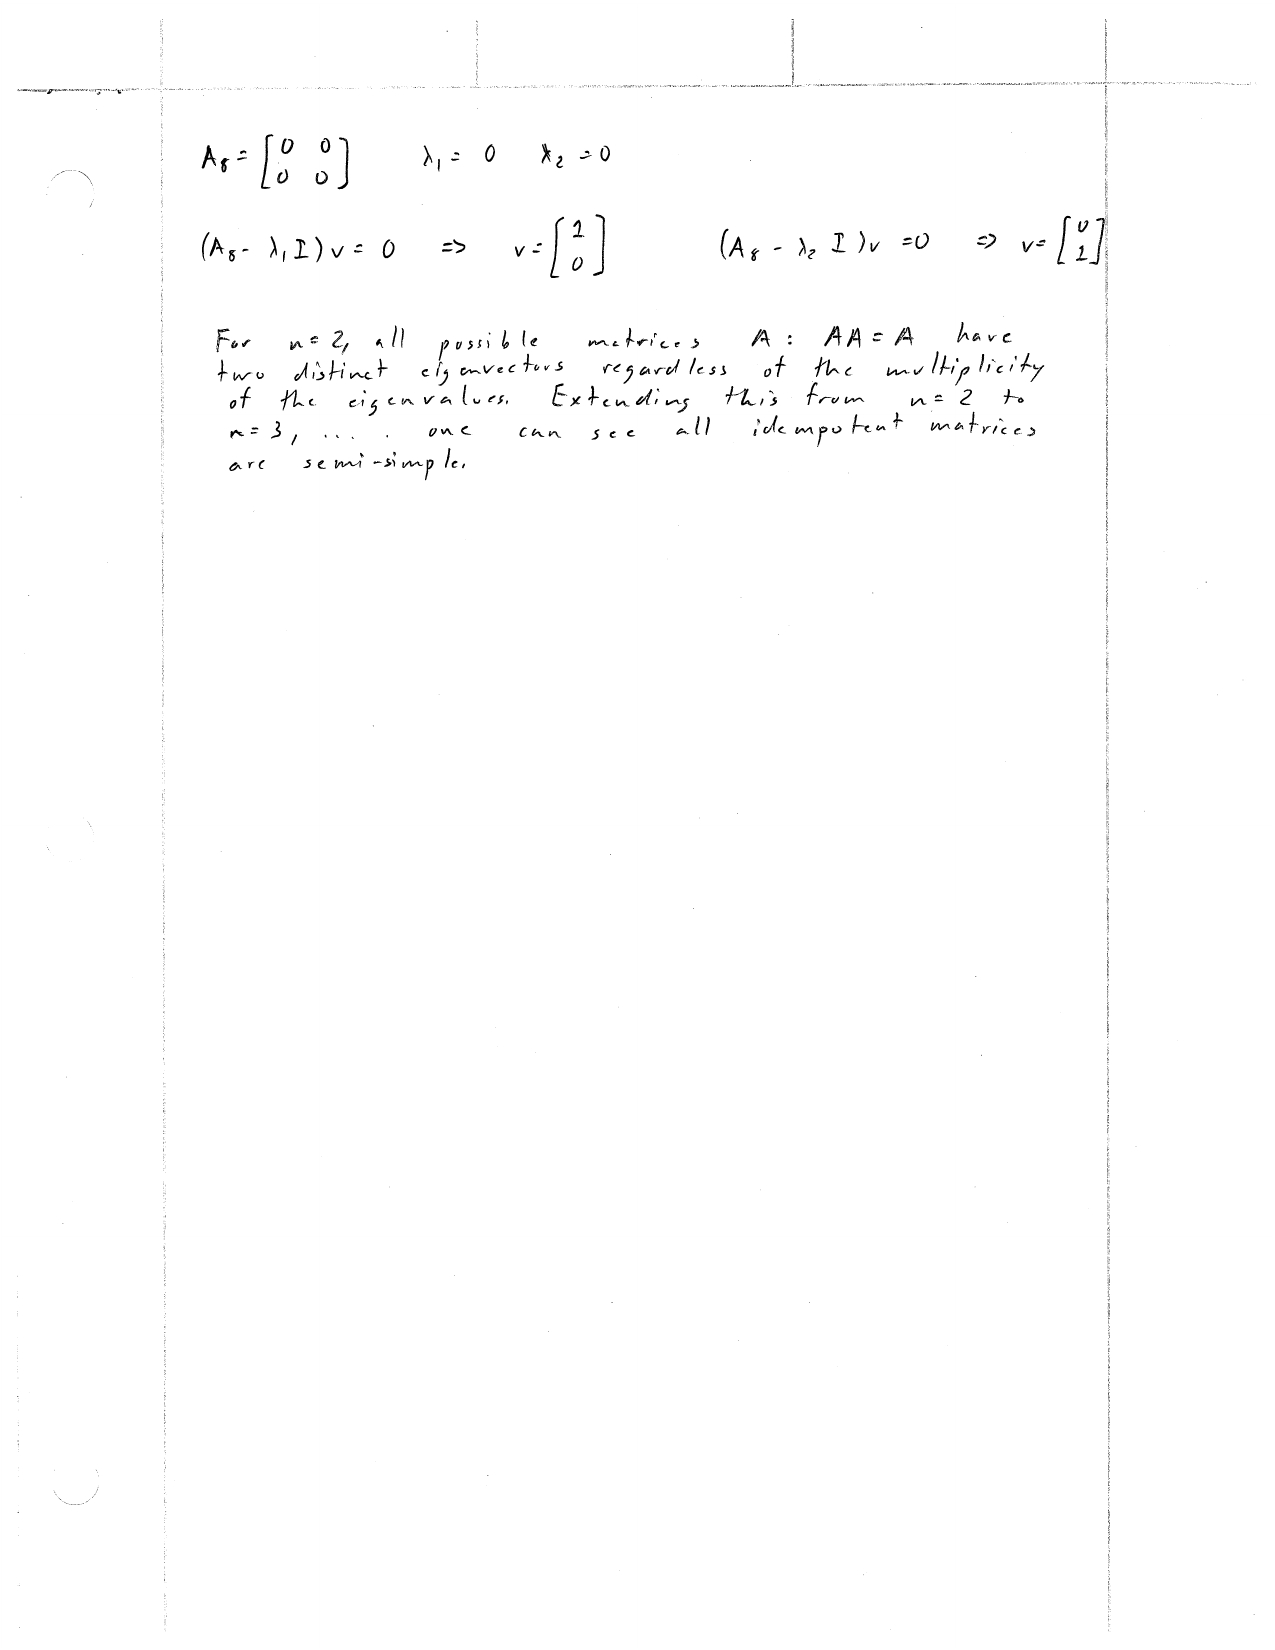 A₈ = [0 0; 0 0] λ₁ = 0 λ₂ = 0
(A₈ - λ₁ I) v = 0 => v = [1; 0] (A₈ - λ₂ I) v = 0 => v = [0; 1]
For n = 2, all possible matrices A : AA = A have
two distinct eigenvectors regardless of the multiplicity
of the eigenvalues. Extending this from n = 2 to
n = 3, ... . one can see all idempotent matrices
are semi-simple.